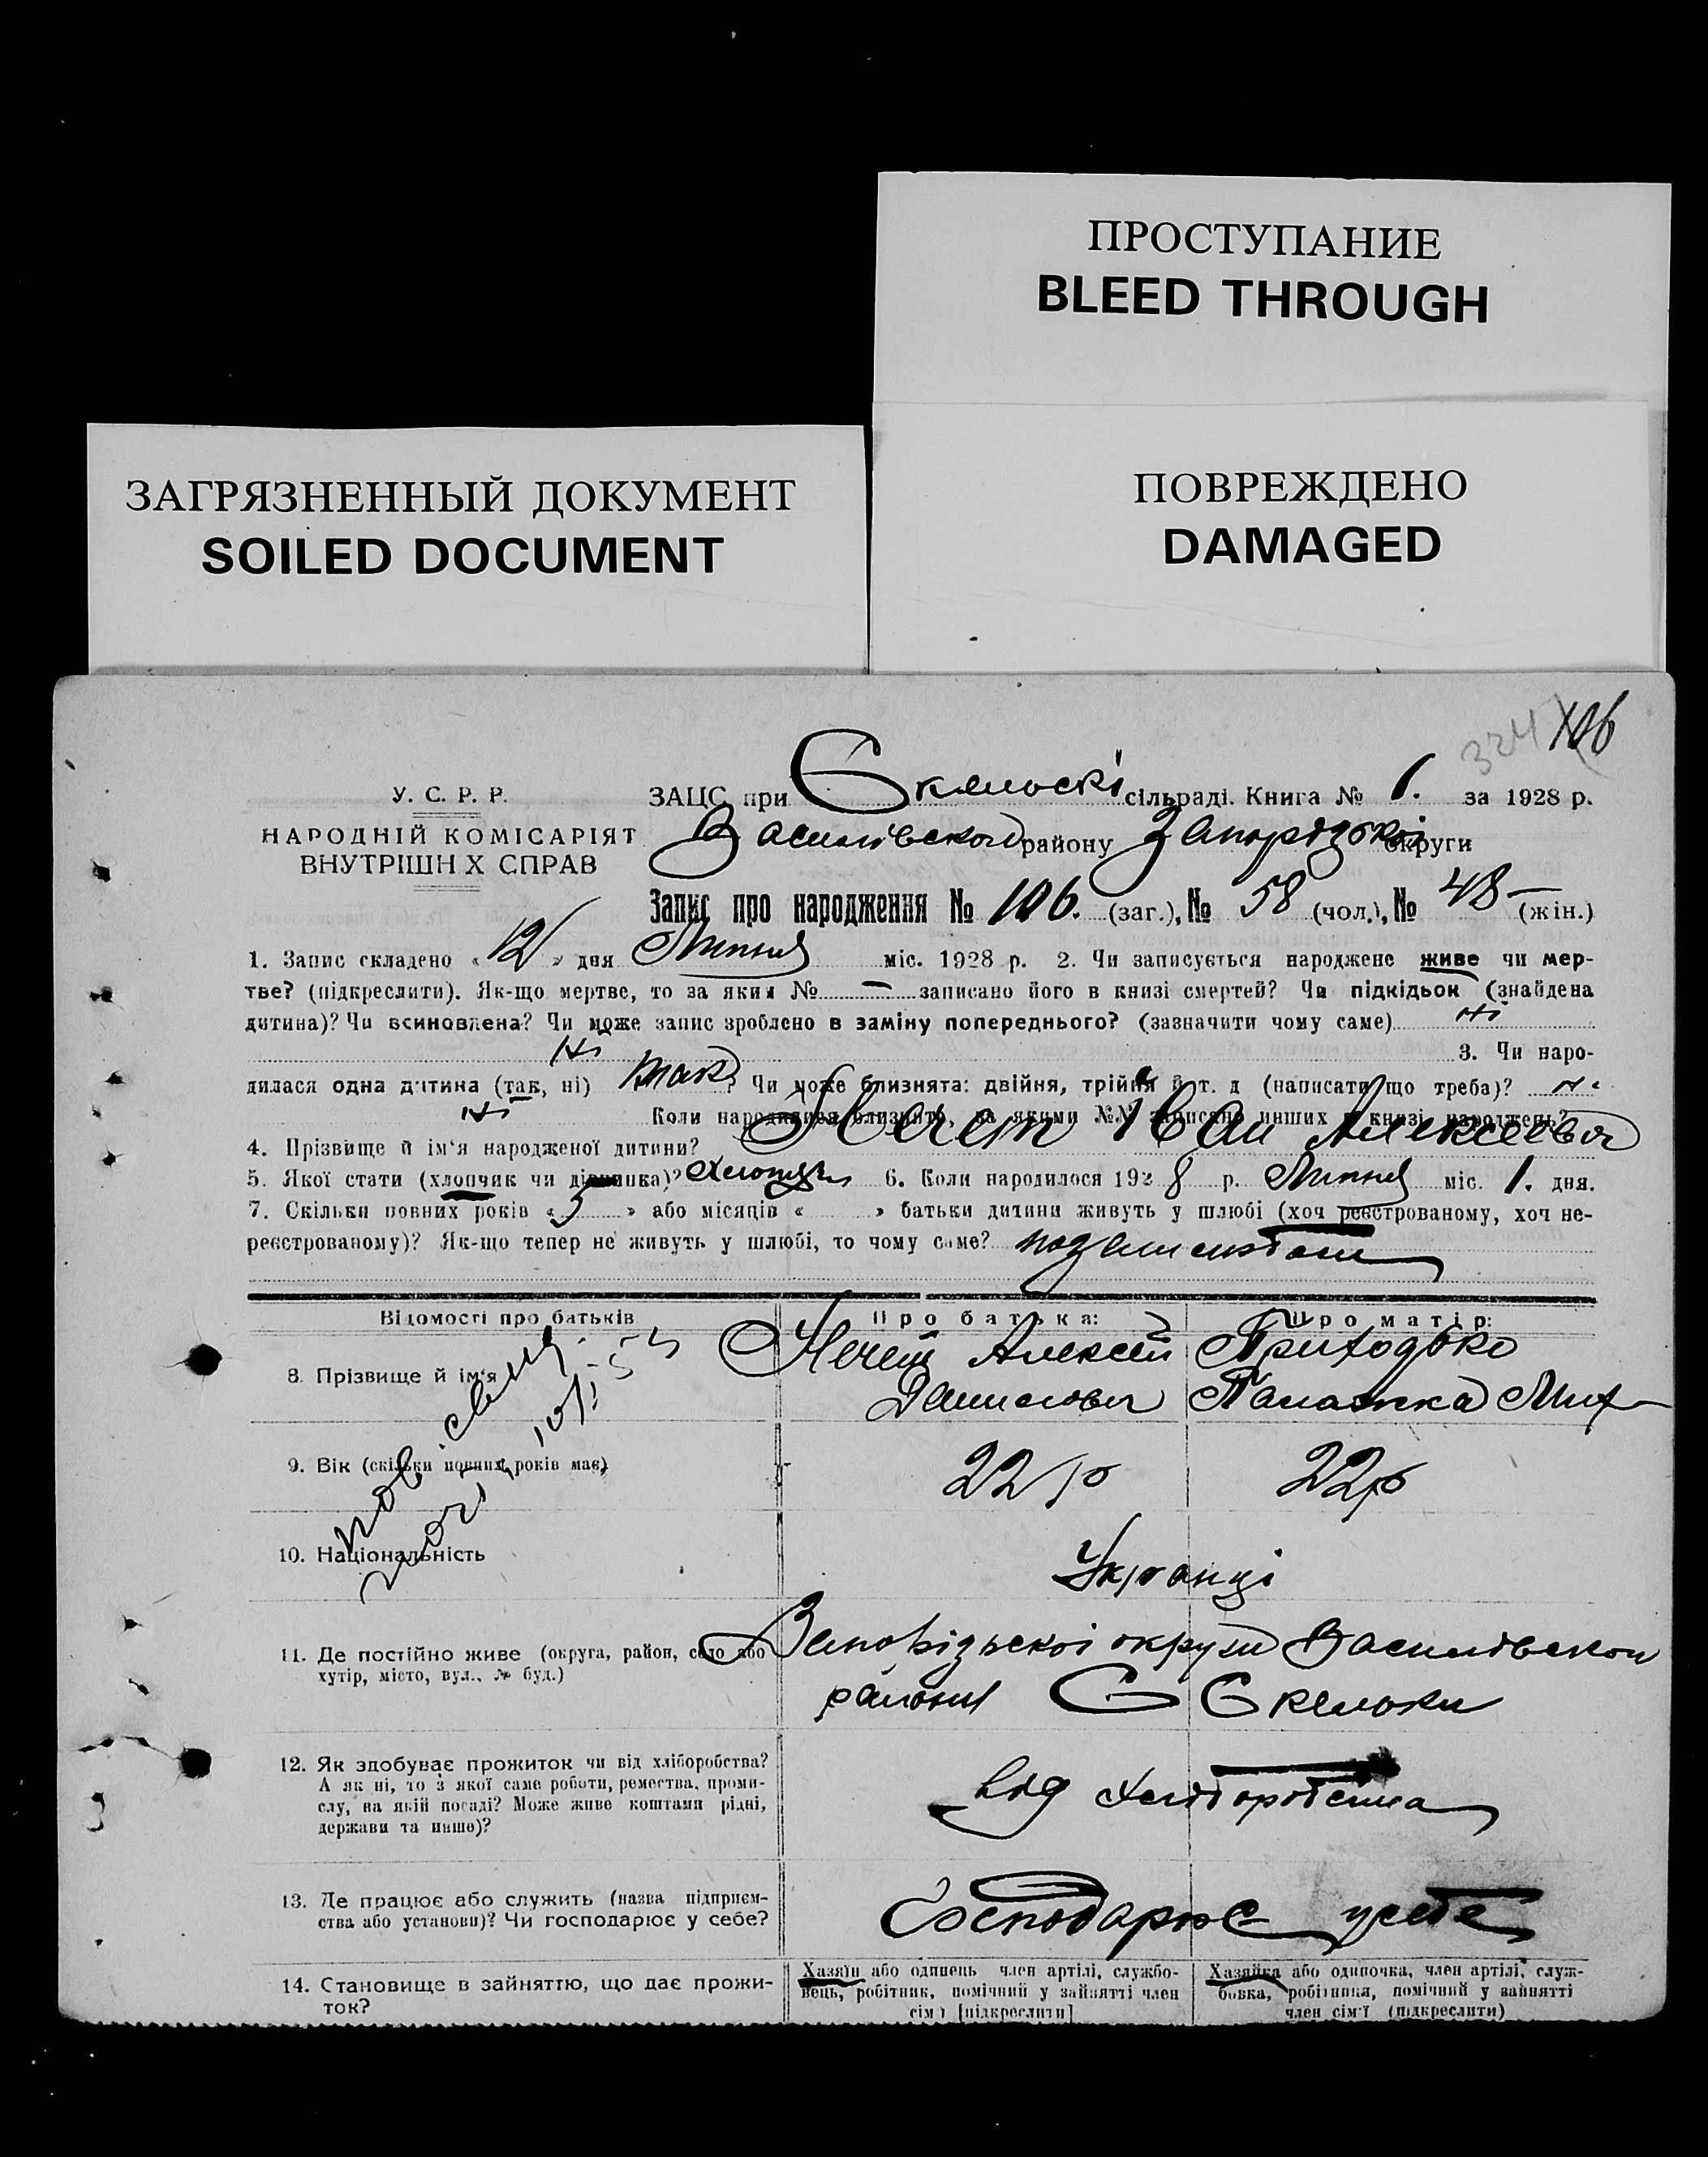 ПРОСТУПАНИЕ
BLEED THROUGH
ЗАГРЯЗНЕННЫЙ ДОКУМЕНТ
SOILED DOCUMENT
ПОВРЕЖДЕНО
DAMAGED
324 106
У. С. Р. Р.
НАРОДНІЙ КОМІСАРІЯТ
ВНУТРІШН Х СПРАВ
ЗАЦС при Скельоскі сільраді. Книга № 1. за 1928 р.
Василівского району Запорізькоі округи
Запис про народження № 106. (заг.), № 58 (чол.), № 48 (жін.)
1. Запис складено « 12 » дня Липня міс. 1928 р. 2. Чи записується народжене живе чи мер-
тве? (підкреслити). Як-що мертве, то за яким № — записано його в книзі смертей? Чи підкідьок (знайдена
дитина)? Чи всиновлена? Чи може запис зроблено в заміну попереднього? (зазначити чому саме) ні
ні 3. Чи наро-
дилася одна дитина (так, ні) так? Чи може близнята: двійня, трійня й т. д (написати що треба)? ні
ні Коли народилися близнята, за якими №№ записано инших в книзі народжень?
4. Прізвище й ім'я народженої дитини? Нечет Іван Алексеевич
5. Якої стати (хлопчик чи дівчинка)? Хлопець 6. Коли народилося 1928 р. Липня міс. 1. дня.
7. Скільки повних років « 5 » або місяців « » батьки дитини живуть у шлюбі (хоч реєстрованому, хоч не-
реєстрованому)? Як-що тепер не живуть у шлюбі, то чому саме?
Відомості про батьків
Про батька:
Про матір:
8. Прізвище й ім'я
Нечет Алексей
Данилович
Приходько
Палажка Мих
9. Вік (скільки повних років має)
22 р
22 р
10. Національність
Українці
11. Де постійно живе (округа, район, село або
хутір, місто, вул., № буд.)
Запорізькоі округи Василівскои
району С Скельки
12. Як здобуває прожиток чи від хліборобства?
А як ні, то з якої саме роботи, ремества, проми-
слу, на якій посаді? Може живе коштами рідні,
держави та инше)?
від хліборобства
13. Де працює або служить (назва підприєм-
ства або установи)? Чи господарює у себе?
Господарює у себе
14. Становище в зайняттю, що дає прожи-
ток?
Хазяїн або одинець член артілі, службо-
вець, робітник, помічний у зайнятті член
сім'ї [підкреслити]
Хазяйка або одиночка, член артілі, служ-
бовка, робітниця, помічний у зайнятті
член сім'ї (підкреслити)